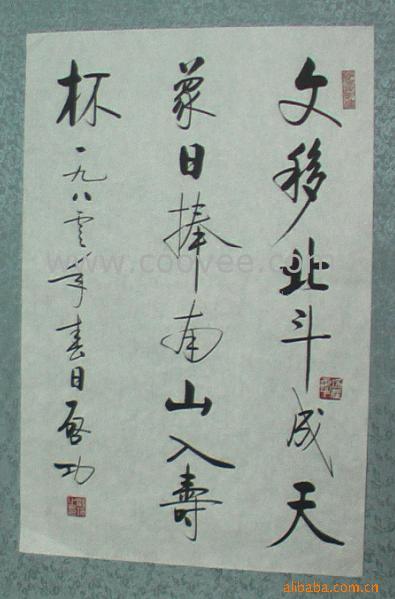 文移北斗成天
象日捧南山入壽
杯一九八零年春日啓功
www.coovee.com
alibaba.com.cn